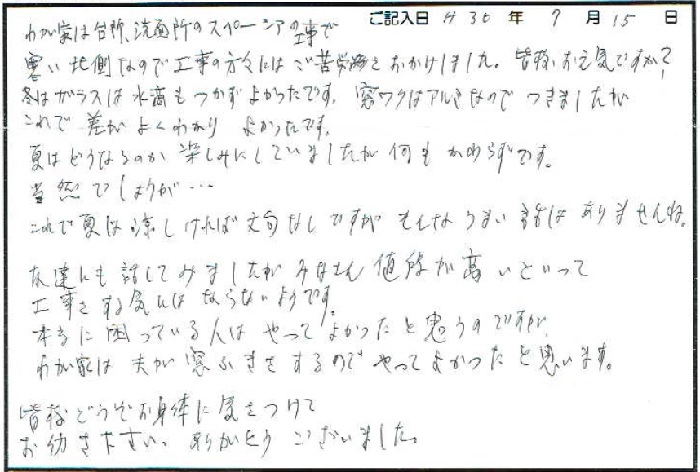 ご記入日 H30年 7月 15日
わが家は台所、洗面所のスペーシアの工事で
寒い北側なので工事の方々にはご苦労をおかけしました。皆様お元気ですか?
冬はガラスは水滴もつかずよかったです。窓ワクはアルミなのでつきましたが
これで差がよくわかりよかったです。
夏はどうなるのか楽しみにしていましたが何もかわらずです。
当然でしょうが…
これで夏は涼しければ文句なしですがそんなうまい話はありませんね。
友達にも話してみましたがみなさん値段が高いといって
工事をする気にはならないようです。
本当に困っている人はやってよかったと思うのですが
わが家は夫が窓ふきをするのでやってよかったと思います。
皆様どうぞお身体に気をつけて
お励き下さい。ありがとうございました。